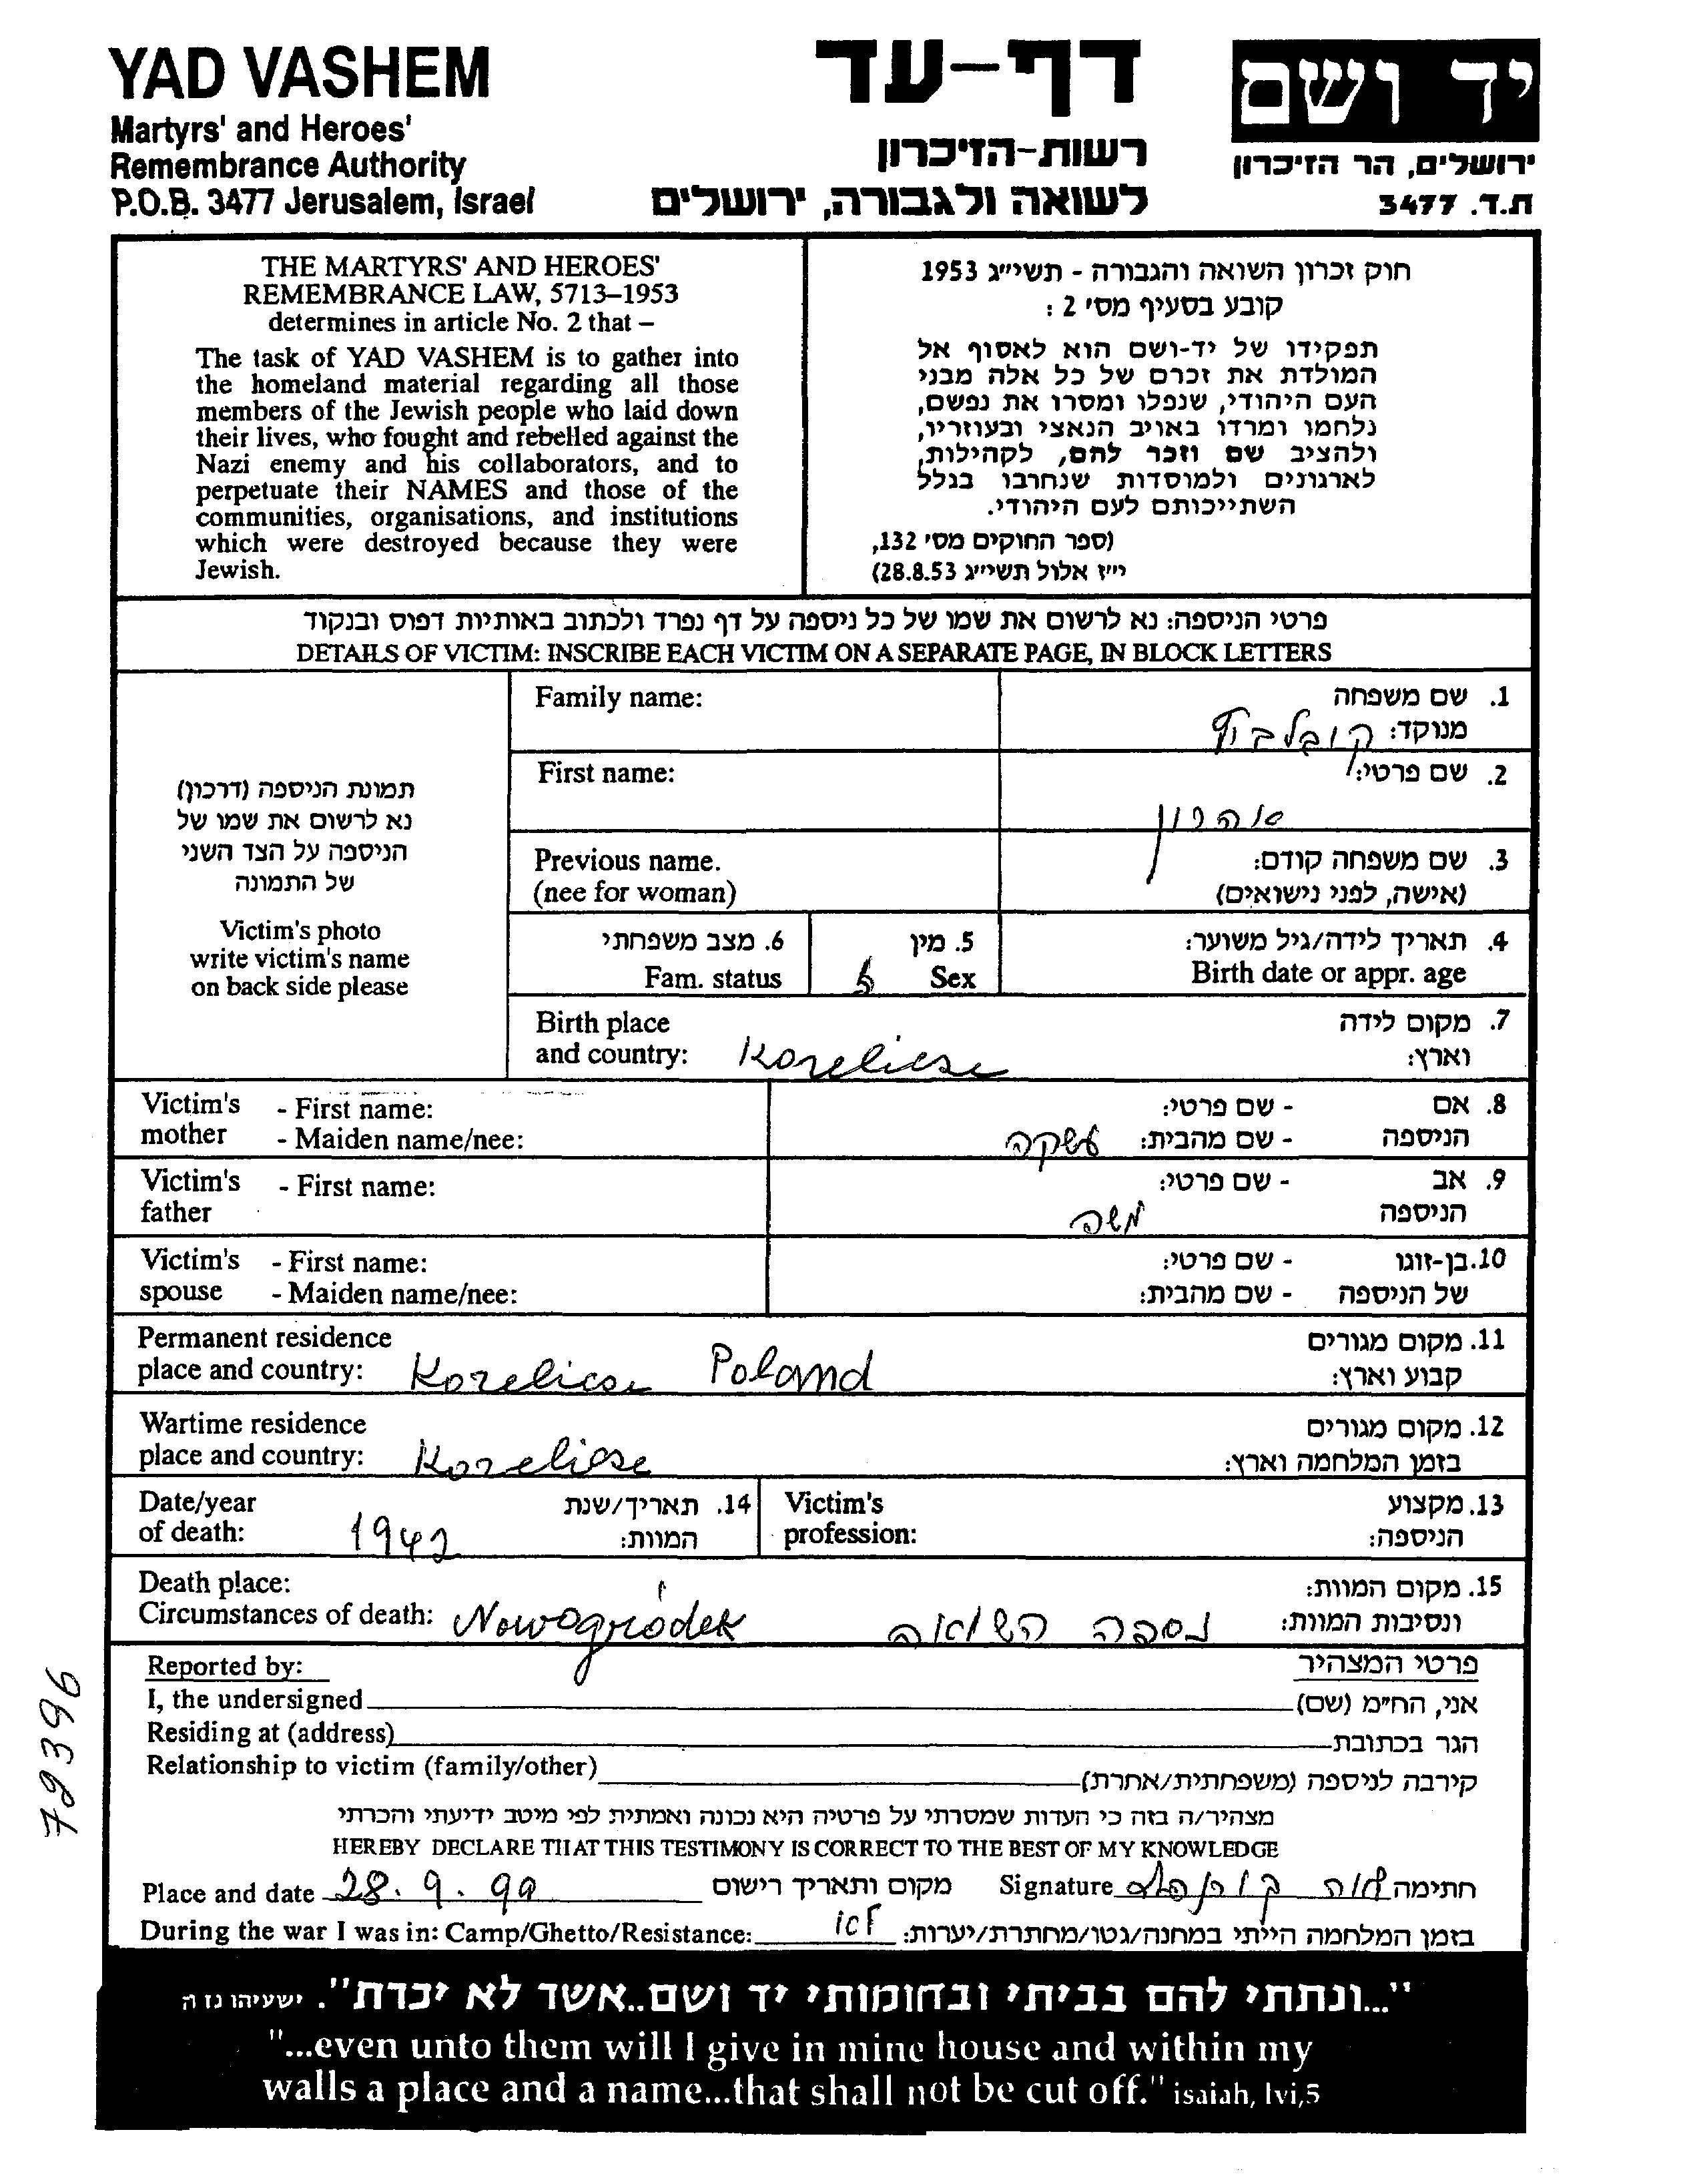 YAD VASHEM
Martyrs' and Heroes'
Remembrance Authority
P.O.B. 3477 Jerusalem, Israel
דף-עד
רשות-הזיכרון
לשואה ולגבורה, ירושלים
יד ושם
ירושלים, הר הזיכרון
ת.ד. 3477
THE MARTYRS' AND HEROES'
REMEMBRANCE LAW, 5713–1953
determines in article No. 2 that –
The task of YAD VASHEM is to gather into
the homeland material regarding all those
members of the Jewish people who laid down
their lives, who fought and rebelled against the
Nazi enemy and his collaborators, and to
perpetuate their NAMES and those of the
communities, organisations, and institutions
which were destroyed because they were
Jewish.
חוק זכרון השואה והגבורה - תשי״ג 1953
קובע בסעיף מס׳ 2 :
תפקידו של יד-ושם הוא לאסוף אל
המולדת את זכרם של כל אלה מבני
העם היהודי, שנפלו ומסרו את נפשם,
נלחמו ומרדו באויב הנאצי ובעוזריו,
ולהציב שם וזכר להם, לקהילות,
לארגונים ולמוסדות שנחרבו בגלל
השתייכותם לעם היהודי.
(ספר החוקים מס׳ 132,
י״ז אלול תשי״ג 28.8.53)
פרטי הניספה: נא לרשום את שמו של כל ניספה על דף נפרד ולכתוב באותיות דפוס ובנקוד
DETAILS OF VICTIM: INSCRIBE EACH VICTIM ON A SEPARATE PAGE, IN BLOCK LETTERS
תמונת הניספה (דרכון)
נא לרשום את שמו של
הניספה על הצד השני
של התמונה
Victim's photo
write victim's name
on back side please
Family name:
1. שם משפחה
מנוקד:
First name:
2. שם פרטי:
אהרון
Previous name.
(nee for woman)
3. שם משפחה קודם:
(אישה, לפני נישואים)
4. תאריך לידה/גיל משוער:
Birth date or appr. age
5. מין
Sex
6. מצב משפחתי
Fam. status
Birth place
and country: Korelicse
7. מקום לידה
וארץ:
Victim's - First name:
mother - Maiden name/nee:
8. אם - שם פרטי:
הניספה - שם מהבית: עשקה
Victim's - First name:
father
9. אב - שם פרטי:
הניספה משה
Victim's - First name:
spouse - Maiden name/nee:
10. בן-זוגו - שם פרטי:
של הניספה - שם מהבית:
Permanent residence
place and country: Korelicse Poland
11. מקום מגורים
קבוע וארץ:
Wartime residence
place and country: Korelicse
12. מקום מגורים
בזמן המלחמה וארץ:
Date/year
of death: 1942
14. תאריך/שנת
המוות:
Victim's
profession:
13. מקצוע
הניספה:
Death place:
Circumstances of death: Nowogródek
15. מקום המוות:
ונסיבות המוות: נספה השואה
Reported by:
פרטי המצהיר
I, the undersigned אני, הח״מ (שם)
Residing at (address) הגר בכתובת
Relationship to victim (family/other) קירבה לניספה (משפחתית/אחרת)
מצהיר/ה בזה כי העדות שמסרתי על פרטיה היא נכונה ואמתית לפי מיטב ידיעתי והכרתי
HEREBY DECLARE THAT THIS TESTIMONY IS CORRECT TO THE BEST OF MY KNOWLEDGE
Place and date 28.9.99 מקום ותאריך רישום Signature חתימה
During the war I was in: Camp/Ghetto/Resistance: לא בזמן המלחמה הייתי במחנה/גטו/מחתרת/יערות:
72396
"...ונתתי להם בביתי ובחומותי יד ושם..אשר לא יכרת". ישעיהו נו ה
"...even unto them will I give in mine house and within my
walls a place and a name...that shall not be cut off." isaiah, lvi,5